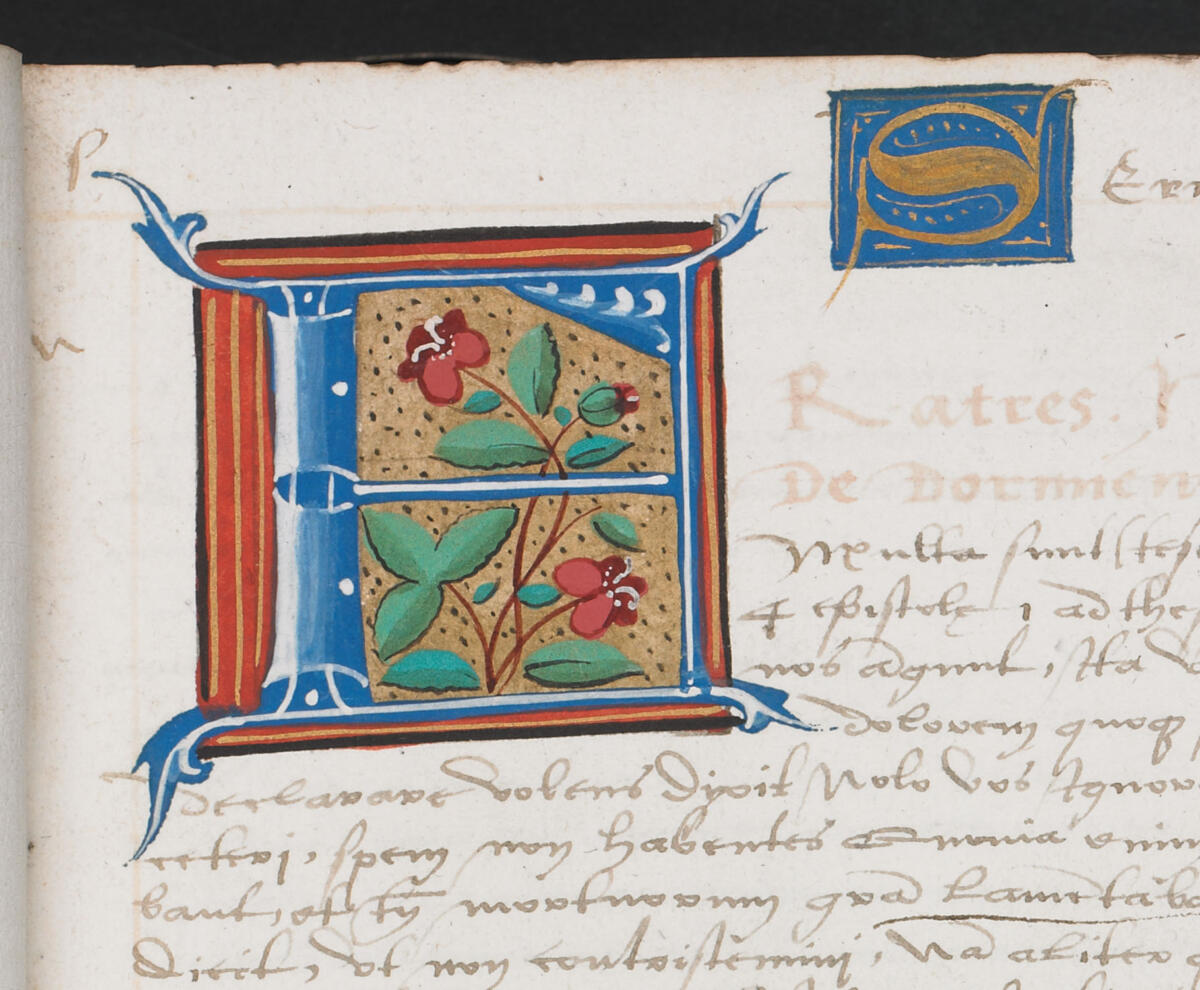 S Er
F Ratres.
De Dormien
Multa sunt
epistolę 1 ad the
nos agunt, Ita
dolorem quoq
declarare volens dixit Nolo vos Ignor
ceteri, spem non habentes Omnia enim
bant, et mortuorum grā lamētaba
dicit, vt non contristemini, Nā aliter